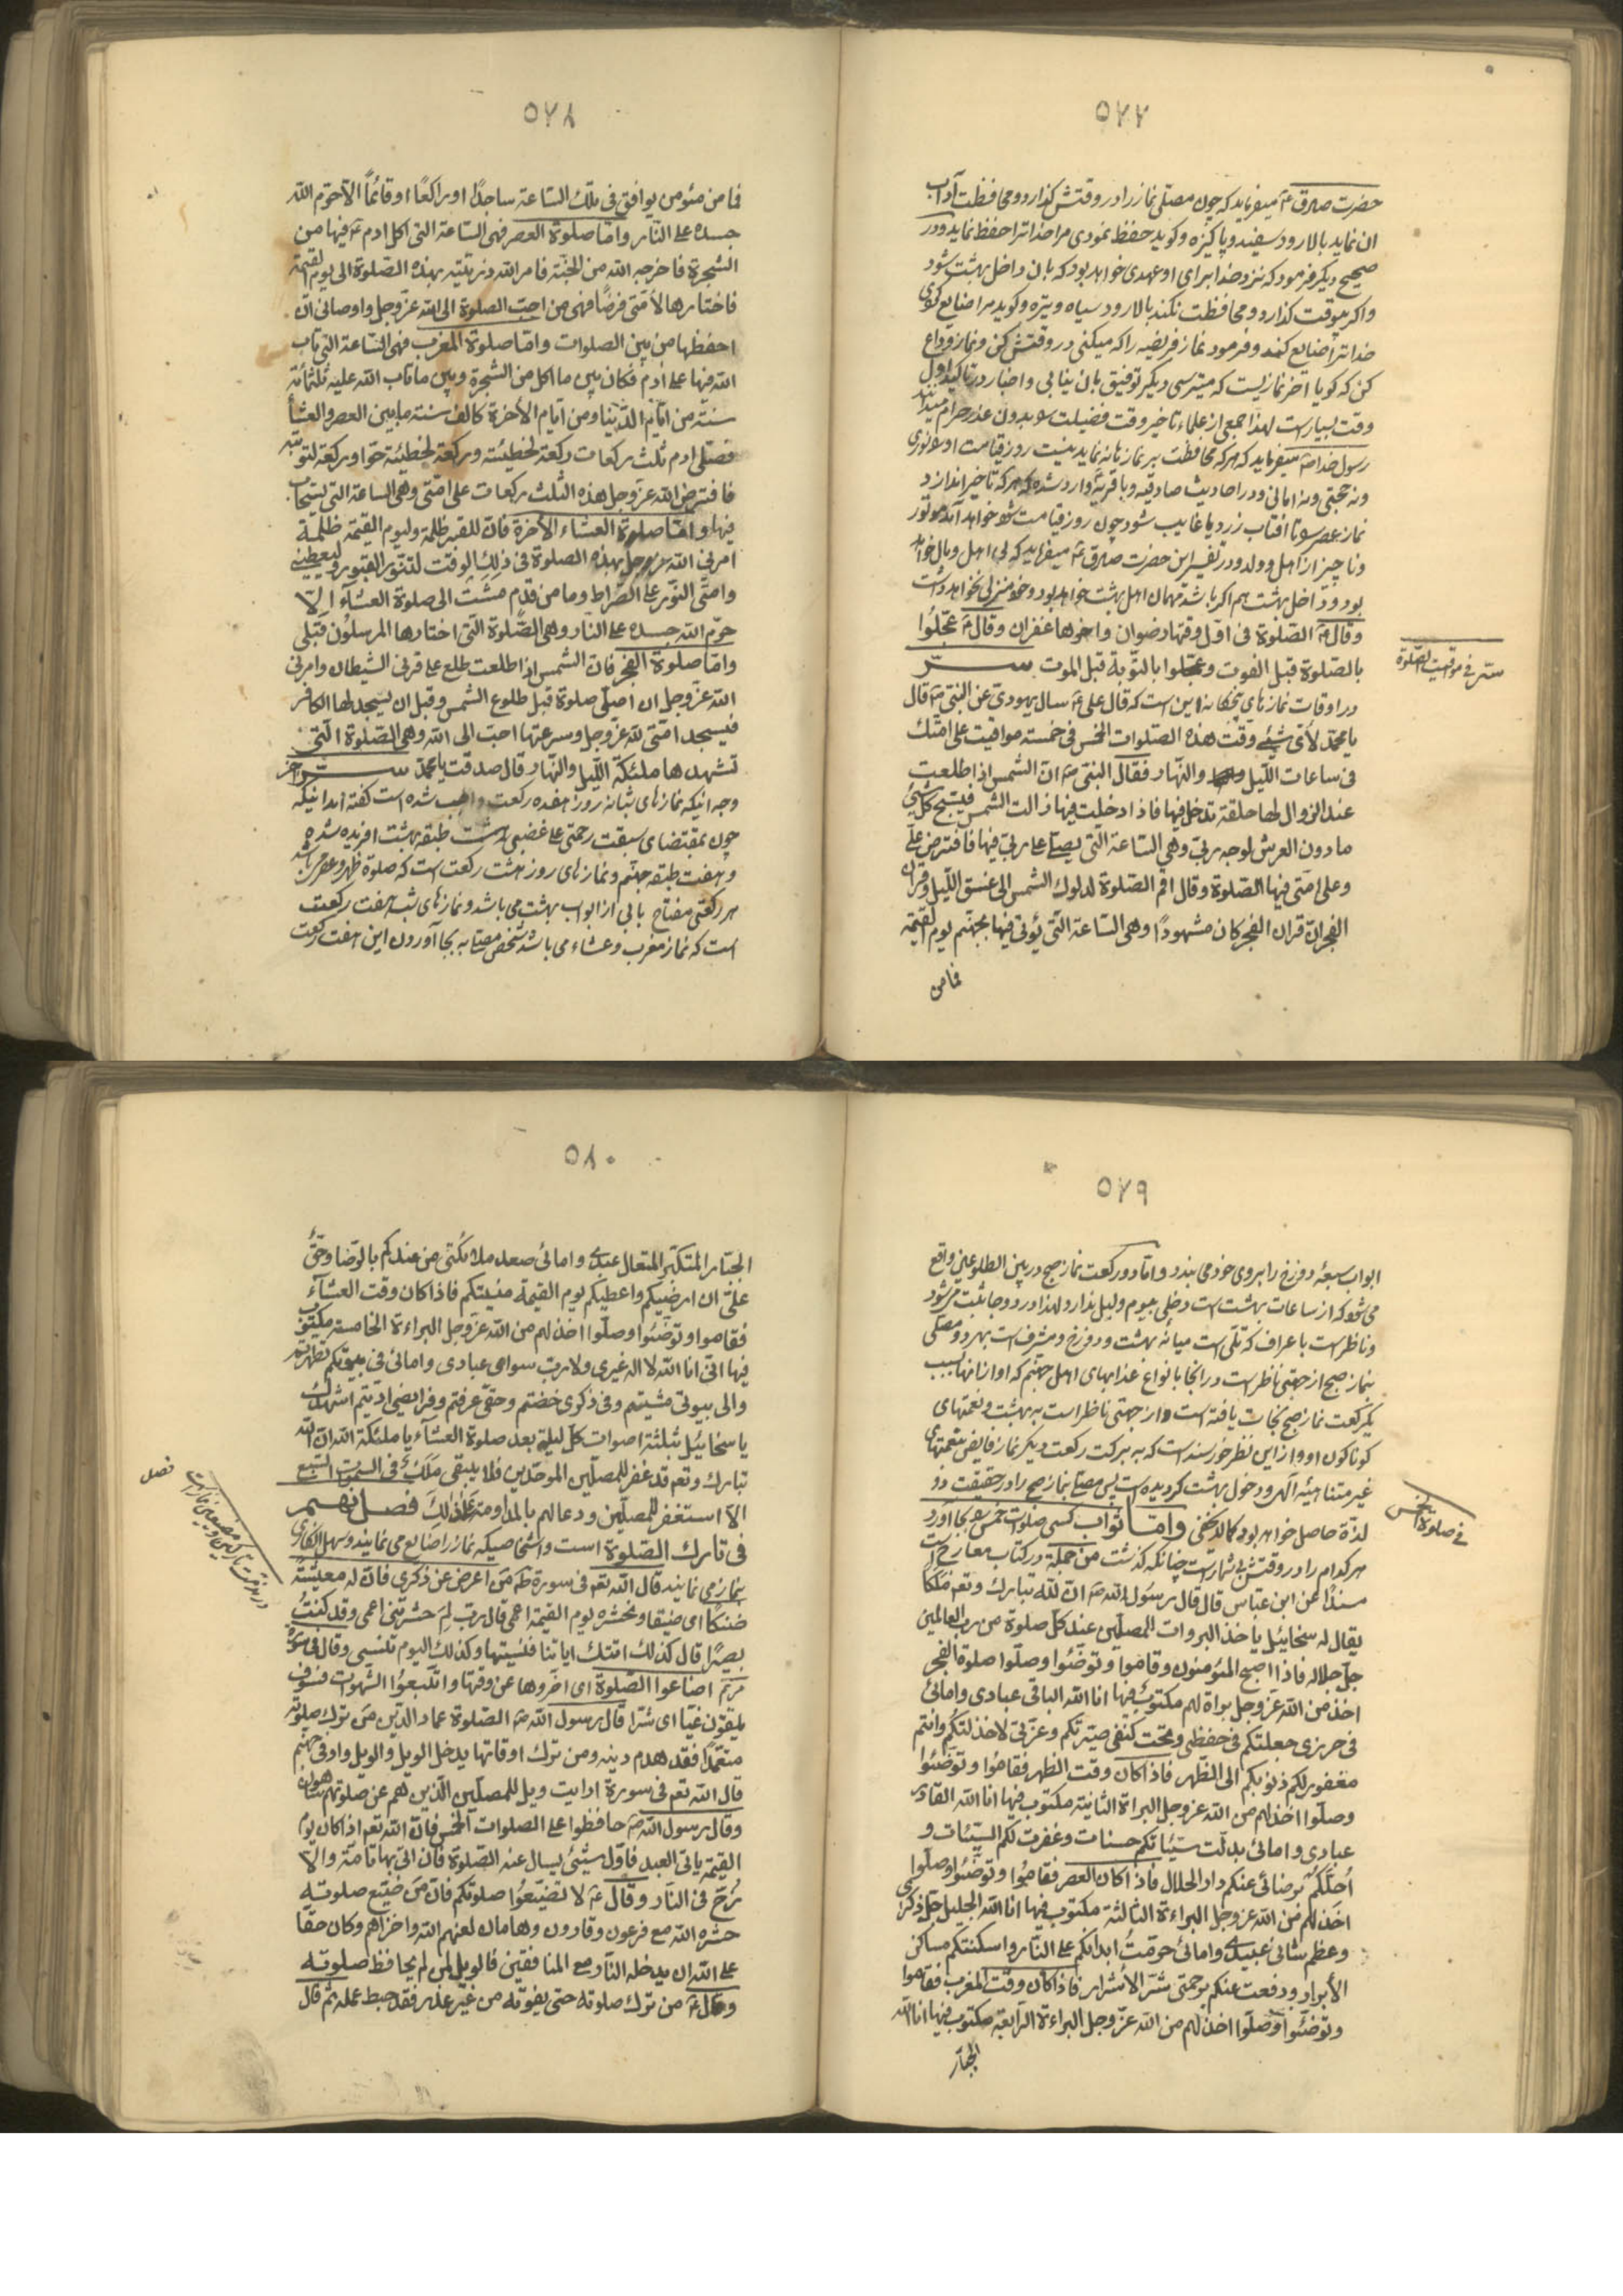 ٥٧٧
حضرت صادق ع میفرماید که چون مصلّی نماز را در وقتش گذارد و محافظت آداب
ان نماید بالا رود سفید و پاکیزه و کوید حفظ نمودی مرا خدا ترا حفظ نماید و در
صحیح دیکر فرمود که نزد خدا برای او عهدی خواهد بود که بان داخل بهشت شود
و اکر بوقت نکذارد و محافظت نکند بالا رود سیاه و تیره و کوید مرا ضایع کردی
خدا ترا ضایع کند و فرمود نماز فریضه را که میکنی در وقتش کن و نماز وداع
کن که کویا اخر نمازیست که میترسی دیکر توفیق بان نیابی و اخبار در تاکید اول
وقت بسیار است لهذا جمعی از علماء تاخیر وقت فضیلت را بدون عذر حرام میدانند
رسول خدا ص میفرماید که هر که محافظت بر نمازها نه نماید نیست روز قیامت او را نوری
و نه حجتی و نه امانی و در احادیث صادقیه و باقریه وارد شده که هر که تاخیر اندازد
نماز عصر را تا افتاب زرد یا غایب شود چون روز قیامت شود خواهد آمد موتور
و ناچیز از اهل و ولد و در تفسیر این حضرت صادق ع میفرماید که بی اهل و مال خواهد
بود و داخل بهشت هم اکر باشد مهمان اهل بهشت خواهد بود و خود منزلی نخواهد داشت
وقال ص الصّلوة فی اوّل وقتها رضوان واخرها غفران وقال ص عجّلوا
بالصّلوة قبل الفوت وعجّلوا بالتّوبة قبل الموت سرّ
در اوقات نمازهای پنجکانه این است که قال علی ع سال یهودی عن النبی ص قال
یا محمّد لأیّ شیئ وقّت هذه الصّلوات الخمس فی خمسة مواقیت علی امّتک
فی ساعات اللّیل والنّهار فقال النبی ص انّ الشمس اذا طلعت
عند الزوال لها حلقة تدخل فیها فاذا دخلت فیها زالت الشمس فیسبّح کلّ شیئ
مادون العرش لوجه ربّی وهی السّاعة الّتی یصلّی علی ربّی فیها فافترض علیّ
وعلی امّتی فیها الصّلوة وقال اقم الصّلوة لدلوک الشمس الی غسق اللّیل وقران
الفجر انّ قران الفجر کان مشهودًا وهی السّاعة الّتی یُؤتی فیها بجهنّم یوم القیمة
فما من
سرّ فی مواقیت الصّلوة
٥٧٨
فما من مئومن یوافق فی تلک السّاعة ساجدًا اوراکعًا اوقائمًا الّا حرّم الله
جسده علی النّار وامّا صلوة العصر فهی السّاعة التی اکل ادم ع فیها من
الشجرة فاخرجه الله من الجنّة فامر الله ذرّیّته بهذه الصّلوة الی یوم القیمة
فاختارها لأمّتی فرضًا فهی من احبّ الصلوة الی الله عزّوجل واوصانی انّ
احفظها من بین الصلوات وامّا صلوة المغرب فهی السّاعة التی تاب
الله فیها علی ادم فکان بین ما اکل من الشجرة وبین ما تاب الله علیه ثلثمائة
سنة من ایّام الدّنیا ومن ایّام الأخرة کالف سنة مابین العصر والعشأ
فصلّی ادم ثلث رکعات رکعة لخطیئته ورکعة لخطیئة حوّا ورکعة لتوبته
فافترض الله عزّوجل هذه الثلث رکعات علی امّتی وهی الساعة التی یستجاب
فیها وامّا صلوة العشاء الأخرة فانّ للقبر ظلمة ولیوم القیمة ظلمة
امرنی الله عزوجل بهذه الصلوة فی ذلِکَ الوقت لتنوّر القبور ولیعطینی
وامّتی النّور علی الصّراط وما من قدم مشت الی صلوة العشآء الّا
حرّم الله جسده علی النّار وهی الصّلوة الّتی اختارها المرسلون قبلی
وامّا صلوة الفجر فانّ الشمس اذا طلعت طلع علی قرنی الشیطان وامرنی
الله عزّوجل ان اصلّی صلوة قبل طلوع الشمس وقبل ان یسجد لها الکافر
فیسجد امّتی لله عزّوجل وسرعتها احبّ الی الله وهی الصّلوة الّتی
تشهدها ملئکة اللّیل والنّهار قال صدقت یا محمّد سرّ اخر
وجه اینکه نمازهای شبانه روز هفده رکعت واجب شده است کفته اند اینکه
چون بمقتضای سبقت رحمتی علی غضبی هشت طبقه بهشت افریده شده
و هفت طبقه جهنّم و نمازهای روز هشت رکعت است که صلوة ظهر و عصر باشد
هر رکعتی مفتاح بابی از ابواب بهشت می باشد و نمازهای شب هفت رکعت
است که نماز مغرب و عشاء می باشد شخص مصلّی به بجا آوردن این هفت رکعت
٥٧٩
ابواب سبعهٔ دوزخ را بروی خود می بندد و امّا دو رکعت نماز صبح در بین الطلوعین واقع
می شود که از ساعات بهشت است دخلی بیوم و لیل ندارد لهذا در دو جا ثبت می شود
و ناظر است با عراف که تلّی است میانه بهشت و دوزخ و مشرف است بهر دو مصلّی
بنماز صبح از جهتی ناظر است در انجا بانواع عذابهای اهل جهنّم که او از انها بسبب
یکرکعت نماز صبح نجات یافته است و از جهتی ناظر است به بهشت و نعمتهای
کوناکون او و از این نظر خورسند است که به برکت رکعت دیکر نماز فایض بنعمتهای
غیر متناهیّه الهی و دخول بهشت کردیده است پس مصلّی بنماز صبح را در حقیقت دو
لذّة حاصل خواهد بود کما لا یخفی وامّا ثواب کسی صلوات خمس را بجا آورد
هر کدام را در وقتش بیشمار است چنانکه کذشت من جملة در کتاب معارج است
مسندًا عن ابن عبّاس قال قال رسول الله ص انّ لله تبارک وتعم ملکا
یقال له سخائیل یاخذ البروات للمصلّین عند کلّ صلوة من ربّ العالمین
جلّ جلاله فاذا اصبح المئومنون وقاموا وتوضّئوا وصلّوا صلوة الفجر
اخذ من الله عزّوجل براة لهم مکتوب فیها انا الله الباقی عبادی وامائی
فی حرزی جعلتکم فی حفظی وتحت کنفی صیّرتکم وعزّتی لاخذلتکم وانتم
مغفور لکم ذنوبکم الی الظّهر فاذا کان وقت الظهر فقاموا وتوضّئوا
وصلّوا اخذ لهم من الله عزوجل البراة الثانیة مکتوب فیها انا الله القادر
عبادی وامائی بدلّت سیّئاتکم حسنات وغفرت لکم السیّئات و
اُحلّکم برضائی عنکم دار الجلال فاذا کان العصر فقاموا وتوضّئوا وصلّوا
اخذ لهم من الله عزوجل البراءة الثالثة مکتوب فیها انا الله الجلیل جلّ ذکری
وعظم شانی عبیدی وامائی حرّمتُ ابدانکم علی النّار واسکنتکم مساکن
الأبرار ودفعت عنکم برحمتی شرّ الأشرار فاذا کان وقت المغرب فقاموا
وتوضّئوا وصلّوا اخذ لهم من الله عزّوجل البراءة الرابعة مکتوب فیها انا الله
الجبّار
فی صلوة الخمس
٥٨٠
الجبّار المتکبّر المتعال عبیدی وامائی صعد ملائکتی من عندکم بالرّضا وحقّ
علیّ ان ارضیکم واعطیکم یوم القیمة منیتکم فاذا کان وقت العشآء
فقاموا وتوضّئوا وصلّوا اخذ لهم من الله عزّوجل البراءة الخامسة مکتوب
فیها انّی انا الله لا اله غیری ولا ربّ سوای عبادی وامائی فی بیوتکم تطهّرتم
والی بیوتی مشیتم وفی ذکری خضتم وحقّی عرفتم وفرائضی ادّیتم اشهدک
یا سخائیل بثلثة اصوات کلّ لیلة بعد صلوة العشآء یا ملئکة الله انّ الله
تبارک وتعم قد غفر للمصلّین الموحّدین فلا یبقی ملک فی السموات السّبع
الّا استغفر للمصلّین ودعا لهم بالمداومة علی ذلِکَ فصل نهم
فی تارک الصّلوة است و اشخاصیکه نماز را ضایع می نمایند و سهل انکاری
بنماز می نمایند قال الله تعم فی سورة طه مَن اعرض عن ذکری فانّ له معیشةً
ضنکًا ای ضیقا ونحشره یوم القیمة اعمی قال ربّ لِمَ حشرتنی اعمی وقد کنتُ
بصیرًا قال کذلک اتتک ایاتنا فنسیتها وکذلک الیوم تنسی وقال فی سورة
مریم اضاعوا الصّلوة ای اخّروها عن وقتها واتّبعوُا الشهوات فسَوف
یلقون غیّا ای شرّا قال رسول الله ص الصّلوة عماد الدّین مَن ترک صلوته
متعمّدًا فقد هدم دینه ومن ترک اوقاتها یدخل الویل والویل واد فی جهنّم
قال الله تعم فی سورة ارایت ویل للمصلّین الّذین هم عن صلوتهم ساهون
وقال رسول الله ص حافظوا علی الصلوات الخمس فانّ الله تعم اذا کان یوم
القیمة یاتی العبد فاوّل شیئ یسال عنه الصّلوة فان اتی بها تامّة والّا
زُخّ فی النّار وقال ع لا تضیّعوُا صلوتکم فانّ مَن ضیّع صلوته
حشره الله مع فرعون وقارون وهامان لعنهم الله واخزاهم وکان حقّا
علی الله ان یدخله النّار مع المنافقین فالویل لمن لم یحافظ صلوته
وقال ع من ترک صلوته حتی یفوته من غیر عذر فقد حبط عمله ثمّ قال
فصل